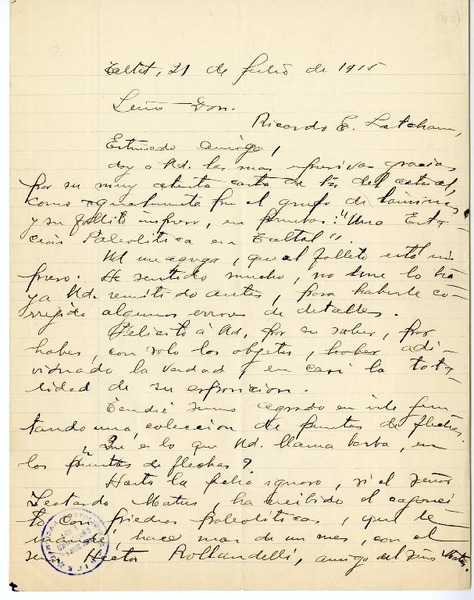 Taltal, 21 de Julio de 1915
Señor Don.
Ricardo E. Latcham,
Estimado Amigo,
doy a Ud. las mas espresivas gracias
por su muy atenta carta de 13 del actual,
como igualmente por el grupo de láminas
y su folleto impreso, en pruebas: "Una Esta-
ción Paleolítica en Taltal".
Ud. me agrega, que el folleto está im-
preso. He sentido mucho, no me lo ha-
ya Ud. remitido antes, para haberle co-
rrejido algunos errores de detalles.
Felicito á Ud. por su saber, por
haber, con solo los objetos, haber adi-
vinado la verdad, en casi la tota-
lidad de su esposicion.
Tendré sumo agrado en irle jun-
tando una coleccion de puntas de flechas.
¿Qué es lo que Ud. llama barba, en
las puntas de flechas?
Hasta la fecha ignoro, si el señor
Leotardo Matus ha recibido el cajonci-
to con piedras paleolíticas, que le
mandé, hace mas de un mes, con el
señor Hector Rollandelli, amigo del señor Matus.